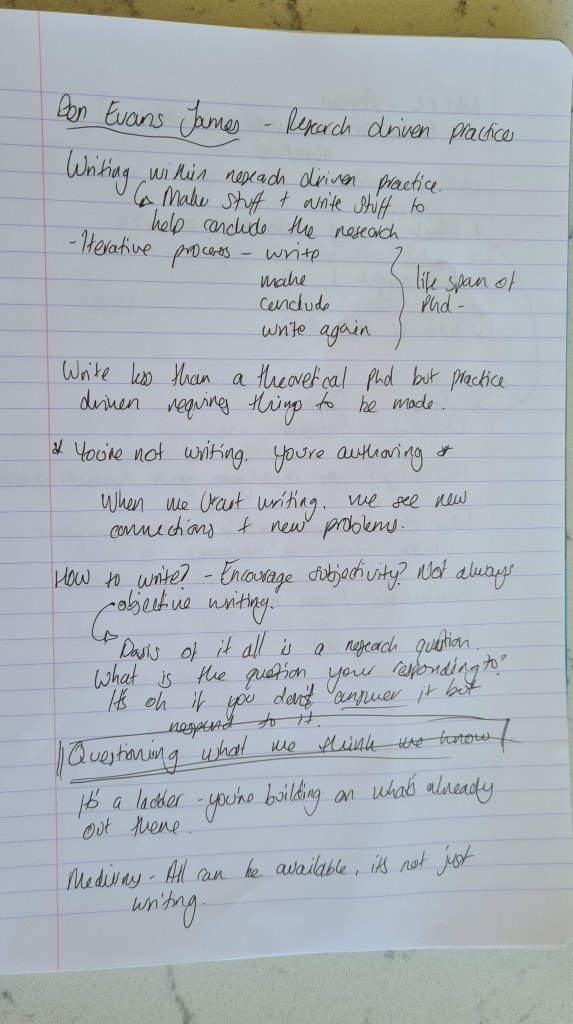 Ben Evans James - Research driven practices
Writing within reseach driven practice.
↳ Make stuff + write stuff to
help conclude the research
- Iterative process - write
make
conclude
write again
life span of
Phd -
Write less than a theoretical Phd but practice
driven requires things to be made.
* You're not writing. You're authoring *
When we start writing. we see new
connections + new problems.
How to write? - Encourage subjectivity? Not always
objective writing.
↳ Basis of it all is a research question.
What is the question your responding to?
It's ok if you don't answer it but
respond to it.
Questioning what we think we know
It's a ladder - you're building on what's already
out there.
Mediums - All can be available, it's not just
writing.